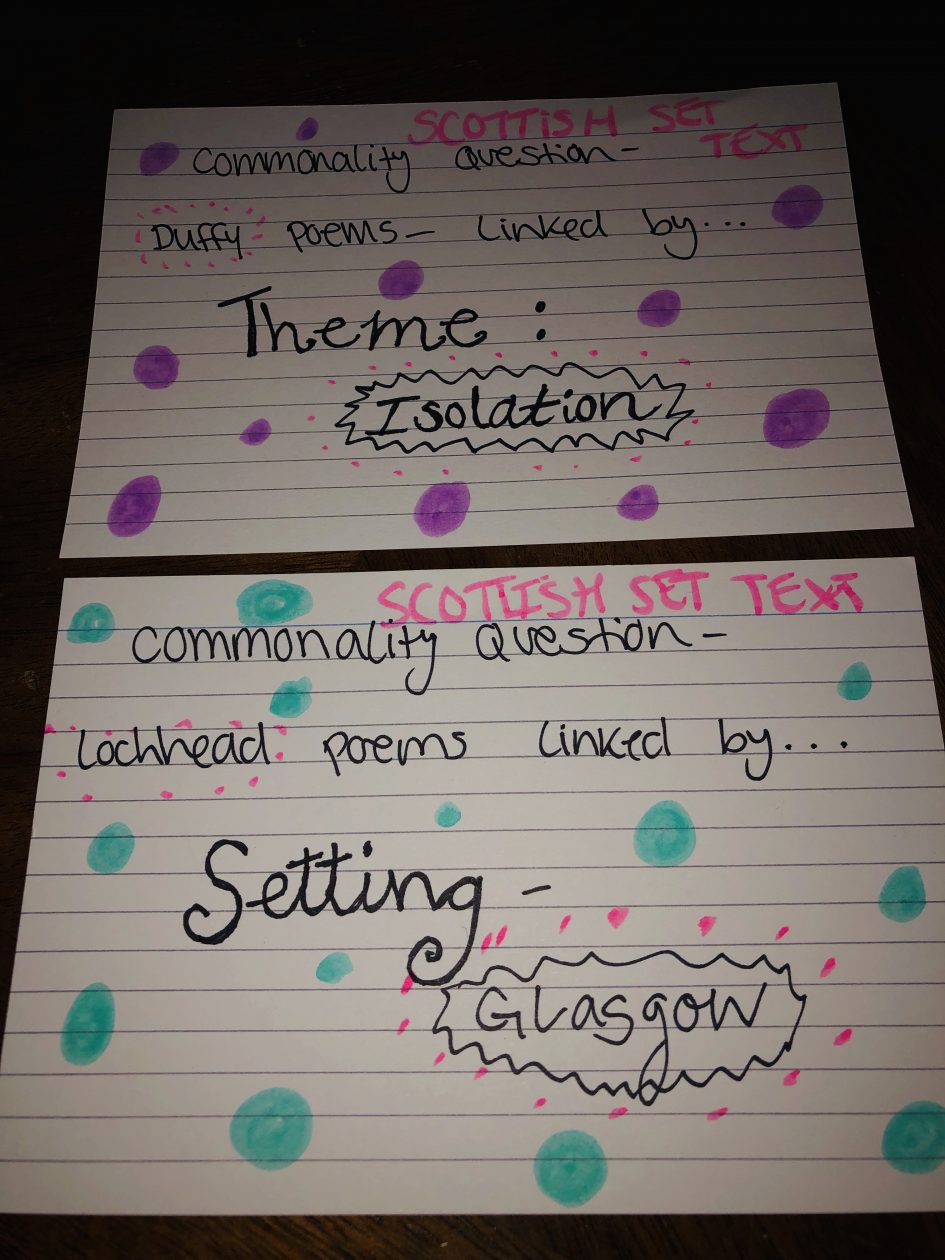 SCOTTISH SET
TEXT
Commonality Question-
Duffy poems- Linked by...
Theme :
Isolation
SCOTTISH SET TEXT
Commonality Question-
Lochhead poems Linked by...
Setting -
Glasgow